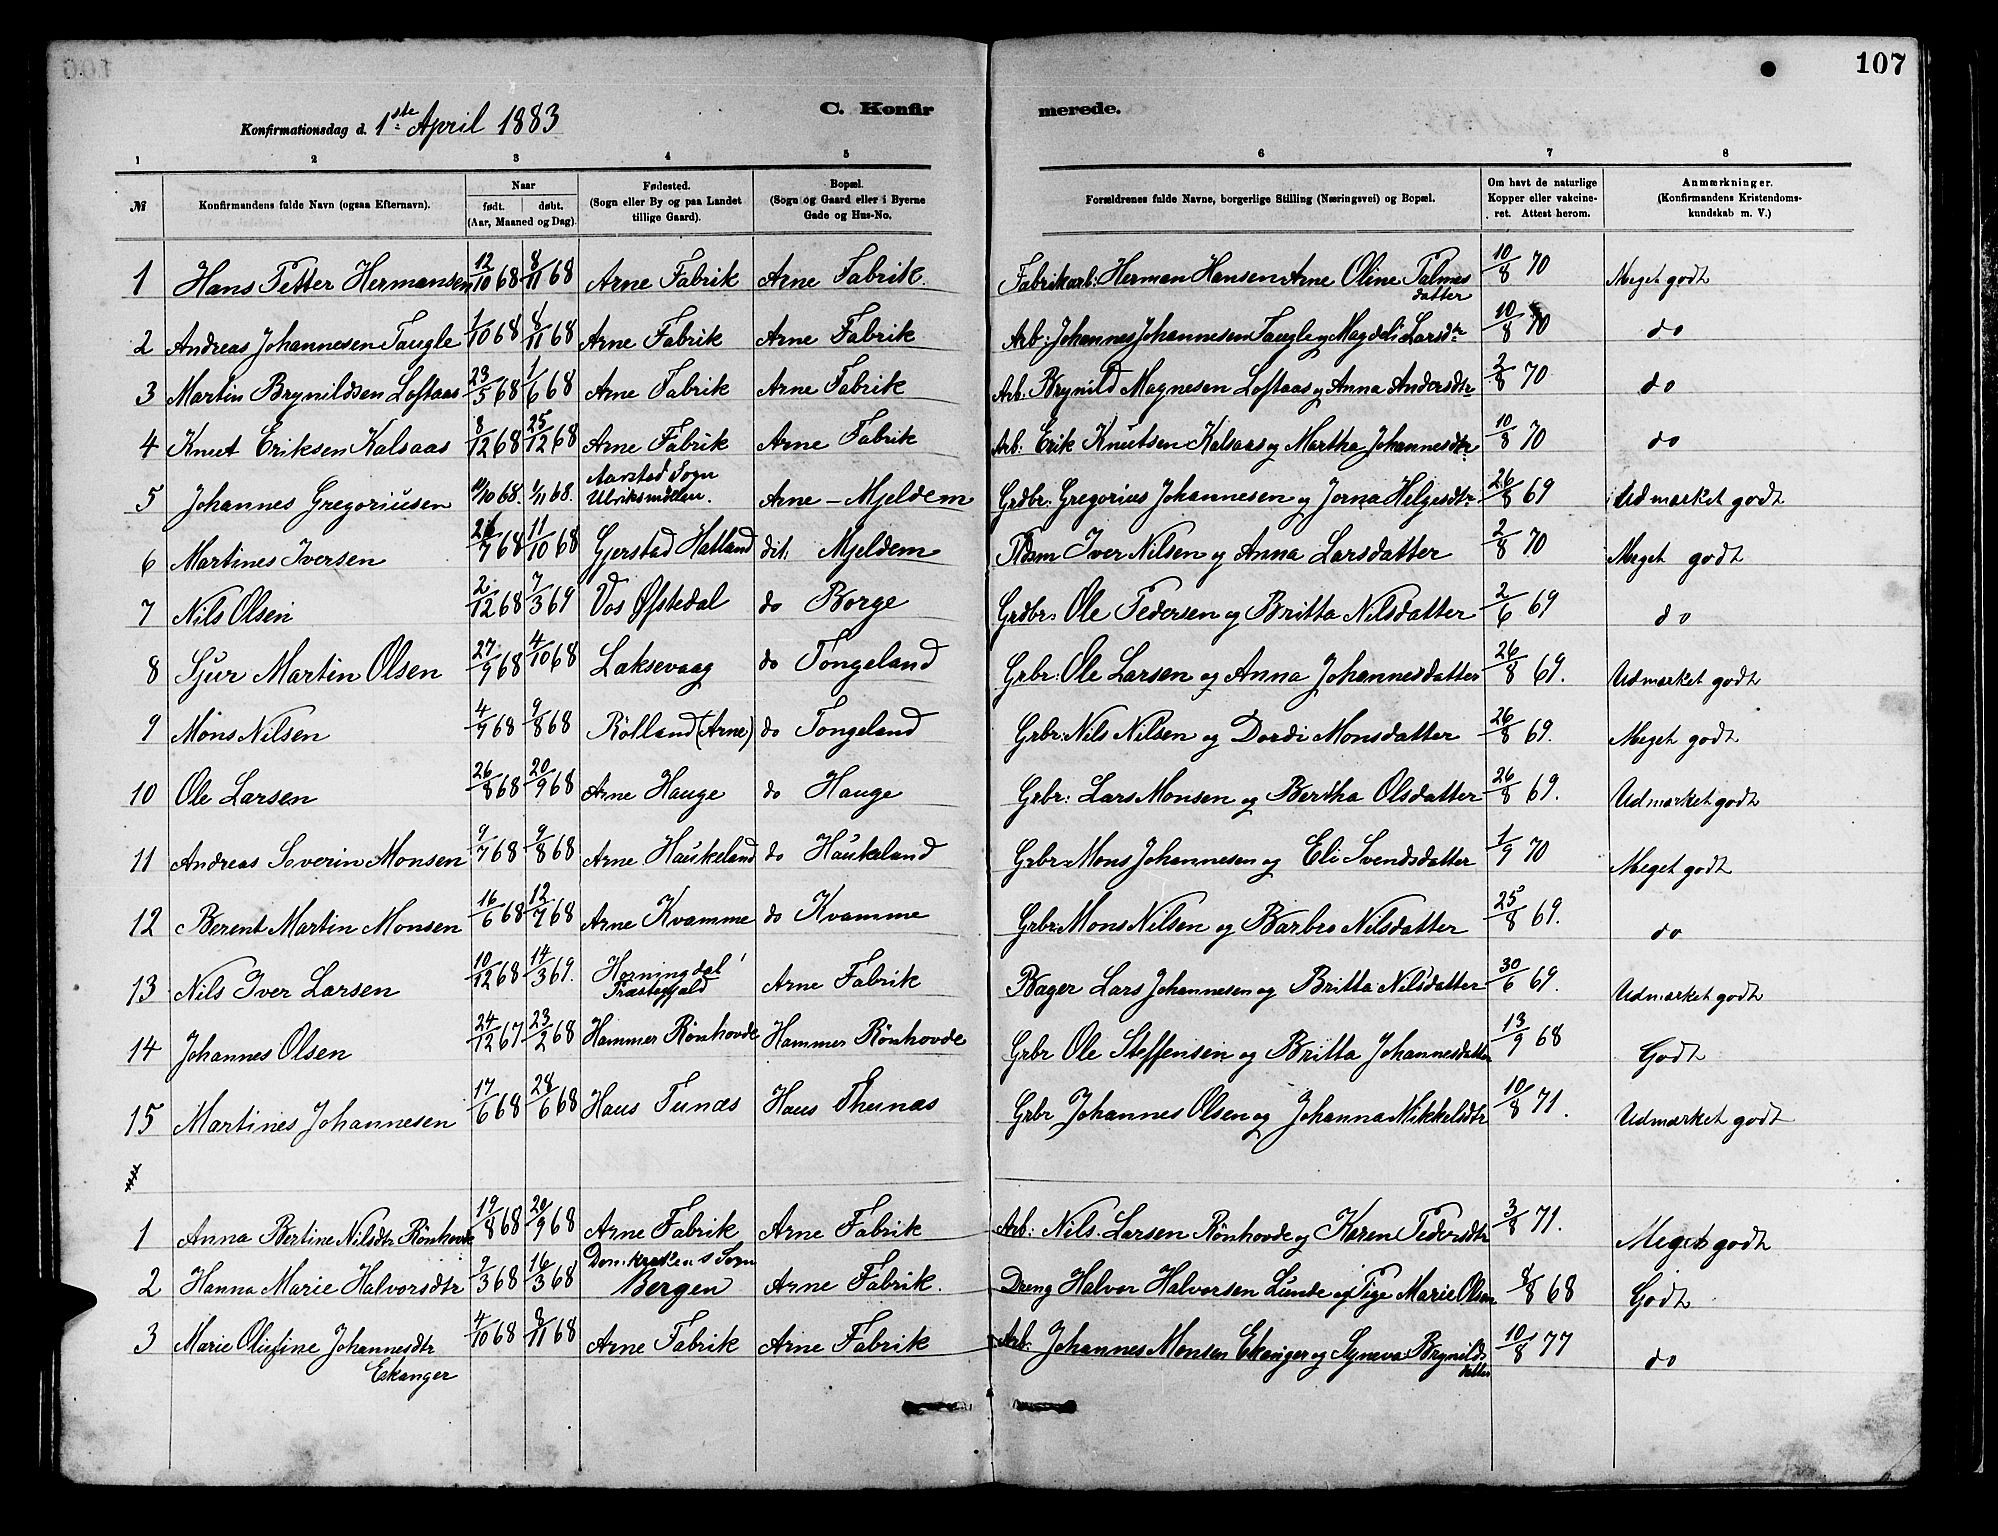 107
Konfirmationsdag d. 1ste April 1883 C. Konfirmerede.
1 2 3 4 5 6 7 8
№ Konfirmandens fulde Navn (ogsaa Efternavn). Naar født. døbt. (Aar, Maaned og Dag). Fødested. (Sogn eller By og paa Landet tillige Gaard). Bopæl. (Sogn og Gaard eller i Byerne Gade og Hus-No. Forældrenes fulde Navne, borgerlige Stilling (Næringsvei) og Bopæl. Om havt de naturlige Kopper eller vakcineret. Attest herom. Anmærkninger. (Konfirmandens Kristendomskundskab m. V.)
1 Hans Petter Hermansen 12/10 68 8/11 68 Arne Fabrik Arne Fabrik. Fabrikarb: Herman Hansen Arne Oline Palmesdatter 10/8 70 Meget godt
2 Andreas Johannesen Taugle 1/10 68 8/11 68 Arne Fabrik Arne Fabrik Arb: Johannes Johannesen Taugle og Magdeli Larsdtr 10/8 70 do
3 Martin Brynildsen Loftaas 23/5 68 1/6 68 Arne Fabrik Arne Fabrik Arb: Brynild Magnesen Loftaas og Anna Andersdtr 2/8 70 do
4 Knut Eriksen Kalsaas 8/12 68 25/12 68 Arne Fabrik Arne Fabrik Arb: Erik Knutsen Kalsaas og Martha Johannesdtr 10/8 70 do
5 Johannes Gregoriusen 11/10 68. 1/11 68. Aarstad Sogn Ulriksmøllen. Arne - Mjeldem Grdbr: Gregorius Johannesen og Jorna Helgesdtr 26/8 69 Udmærket godt
6 Martines Iversen 26/7 68 11/10 68 Gjerstad Hatland dit. Mjeldem Iver Nilsen og Anna Larsdatter 2/8 70 Meget godt
7 Nils Olsen 2/12 68 7/3 69 Vos Øfstedal do Borge Grdbr: Ole Pedersen og Britta Nilsdatter 2/6 69 do
8 Sjur Martin Olsen 27/9 68 4/10 68 Laksevaag do Tongeland Grbr: Ole Larsen og Anna Johannesdatter 26/8 69. Udmærket godt
9 Møns Nilsen 4/9 68 9/8 68 Rölland (Arne) do Tongeland Grbr: Nils Nilsen og Dordi Monsdatter 26/8 69. Meget godt
10 Ole Larsen 26/8 68 20/9 68 Arne Hauge do Hauge Grbr: Lars Monsen og Beritha Olsdatter 26/8 69. Udmærket godt
11 Andreas Severin Monsen 9/7 68 9/8 68 Arne Haukeland do Haukeland Grbr: Mons Johannesen og Eli Svendsdatter 1/9 70 Meget godt
12 Berent Martin Monsen 16/6 68 12/7 68 Arne Kvamme do Kvamme Grbr: Mons Nilsen og Barbro Nilsdatter 25/8 69. do
13 Nils Iver Larsen 10/12 68 14/3 69. Horningdal Præstegjæld Arne Fabrik Bager Lars Johannesen og Britta Nilsdatter 30/6 69. Udmærket godt
14 Johannes Olsen 24/12 67 23/2 68 Hammer Rønhovde Hammer Rønhovde Grbr Ole Steffensen og Britta Johannesdatter 13/9 68 Godt
15 Martines Johannesen 17/6 68 28/6 68 Haus Tunæs Haus Thunæs Grbr Johannes Olsen og Johanna Mikkelsdtr 10/8 71. Udmærket godt
1 Anna Bertine Nilsdtr Rønhovde 19/8 68 20/9 68 Arne Fabrik Arne Fabrik Arb: Nils Larsen Rønhovde og Karen Pedersdtr 3/8 71. Meget godt
2 Hanna Marie Halvorsdtr 9/3 68 16/3 68 Domkirkens Sogn Bergen Arne Fabrik. Dreng Halvor Halvorsen Lunde og Pige Marie Olsen 8/8 68 Godt
3 Marie Oliefine Johannesdtr Eskanger 4/10 68 8/11 68 Arne Fabrik Arne Fabrik Arb: Johannes Monsen Ekanger og Syneva Brynildsdatter 10/8 77 do